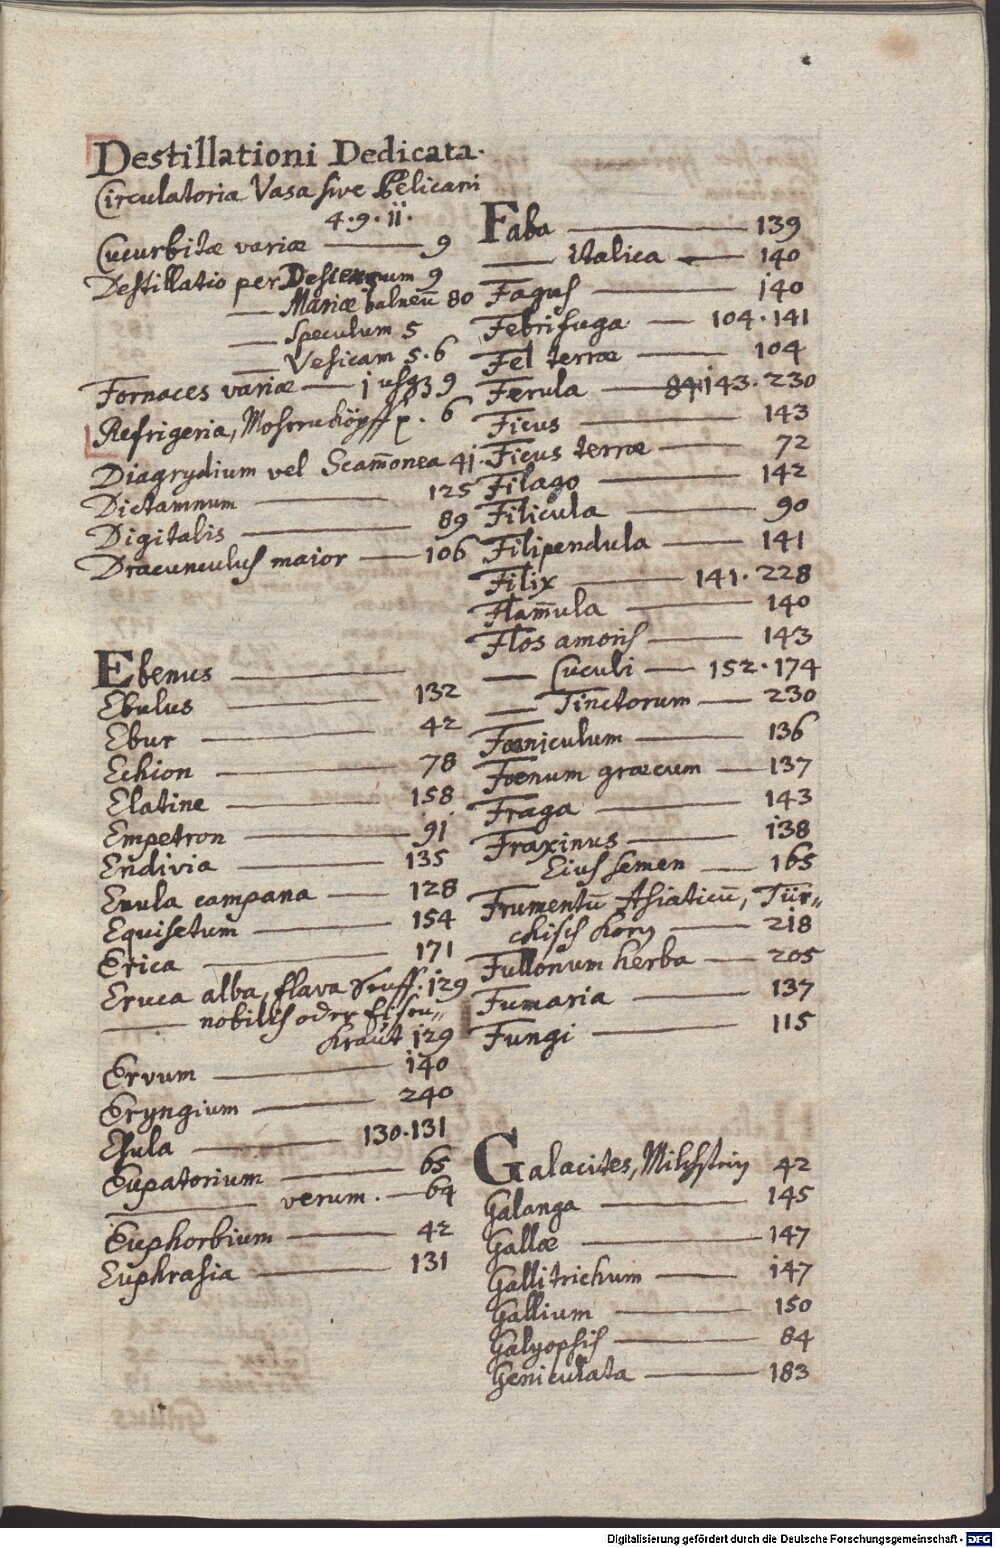 Destillationi Dedicata.
Circulatoria Vasa sive Pelicani
4. 9. ii.
Cucurbitæ variæ — 9
Destillatio per Descensum 9
— Mariæ balneū 80
— Speculum 5
— Vesicam 5. 6
Fornaces variæ — j usqz 9
Refrigeria, 6
Diagrydium vel Scam̄onea 41.
Dictamnum — 125
Digitalis — 89
Dracunculus maior — 106
Ebenus —
Ebulus — 132
Ebur — 42
Echion — 78
Elatine — 158
Empetron — 91
Endivia — 135
Enula campana — 128
Equisetum — 154
Erica — 171
Eruca alba, flava Senff. 129
— nobilis oder Eisen„
Kraut 129
Ervum — 140
Eryngium — 240
Esula — 130. 131
Eupatorium — 65
— verum. — 64
Euphorbium — 42
Euphrasia — 131
Faba — 139
— italica — 140
Fagus — 140
Febrifuga — 104. 141
Fel terræ — 104
Ferula — 143. 230
Ficus — 143
Ficus terræ — 72
Filago — 142
Filicula — 90
Filipendula — 141
Filix — 141. 228
Flam̄ula — 140
Flos amoris — 143
— Cuculi — 152. 174
— Tinctorum — 230
Fœniculum — 136
Foenum græcum — 137
Fraga — 143
Fraxinus — 138
Eius semen — 165
Frumentū Asiaticū, Tür„
ckisch Korn — 218
Fullonum herba — 205
Fumaria — 137
Fungi — 115
Galacites, Milchstein 42
Galanga — 145
Gallæ — 147
Gallitrichum — 147
Gallium — 150
Galyopsis — 84
Geniculata — 183
Digitalisierung gefördert durch die Deutsche Forschungsgemeinschaft - DFG